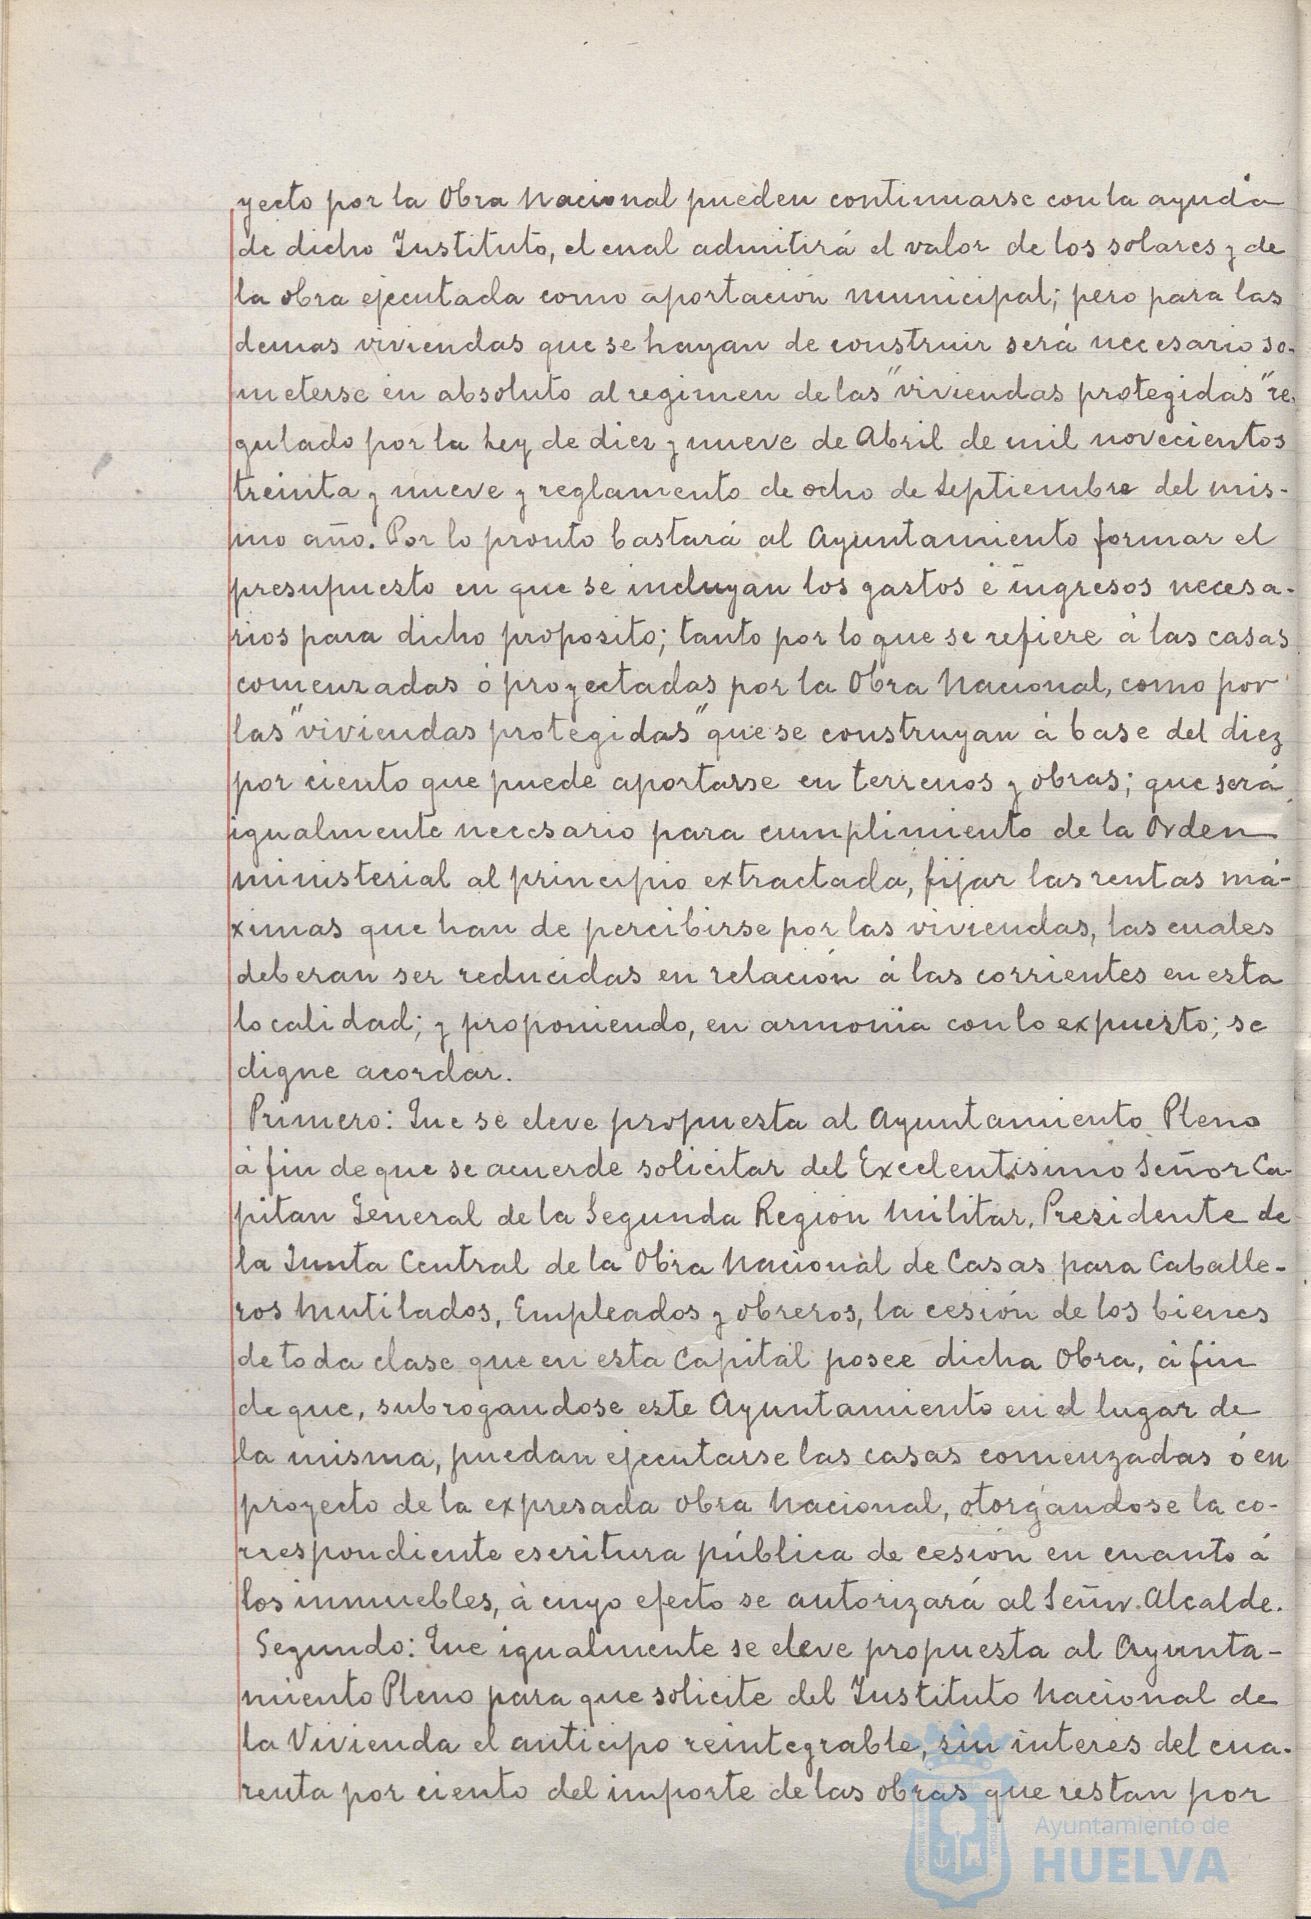 yecto por la Obra Nacional pueden continuarse con la ayuda
de dicho Instituto, el cual admitirá el valor de los solares y de
la obra ejecutada como aportación municipal; pero para las
demas viviendas que se hayan de construir será necesario so-
meterse en absoluto al regimen de las "viviendas protegidas" re-
gulado por la Ley de diez y nueve de Abril de mil novecientos
treinta y nueve y reglamento de ocho de Septiembre del mis-
mo año. Por lo pronto bastará al Ayuntamiento formar el
presupuesto en que se incluyan los gastos é ingresos necesa-
rios para dicho proposito; tanto por lo que se refiere á las casas
comenzadas ó proyectadas por la Obra Nacional, como por
las "viviendas protegidas" que se construyan á base del diez
por ciento que puede aportarse en terrenos y obras; que será
igualmente necesario para cumplimiento de la Orden
ministerial al principio extractada, fijar las rentas má-
ximas que han de percibirse por las viviendas, las cuales
deberan ser reducidas en relación á las corrientes en esta
localidad; y proponiendo, en armonia con lo expuesto; se
digne acordar.
Primero: Que se eleve propuesta al Ayuntamiento Pleno
á fin de que se acuerde solicitar del Excelentisimo Señor Ca-
pitan General de la Segunda Región Militar, Presidente de
la Junta Central de la Obra Nacional de Casas para Caballe-
ros Mutilados, Empleados y obreros, la cesión de los bienes
de toda clase que en esta Capital posee dicha Obra, á fin
de que, subrogandose este Ayuntamiento en el lugar de
la misma, puedan ejecutarse las casas comenzadas ó en
proyecto de la expresada Obra Nacional, otorgandose la co-
rrespondiente escritura pública de cesión en cuanto á
los inmuebles, á cuyo efecto se autorizará al Señor Alcalde.
Segundo: Que igualmente se eleve propuesta al Ayunta-
miento Pleno para que solicite del Instituto Nacional de
la Vivienda el anticipo reintegrable, sin interés del cua-
renta por ciento del importe de las obras que restan por
Ayuntamiento de
HUELVA